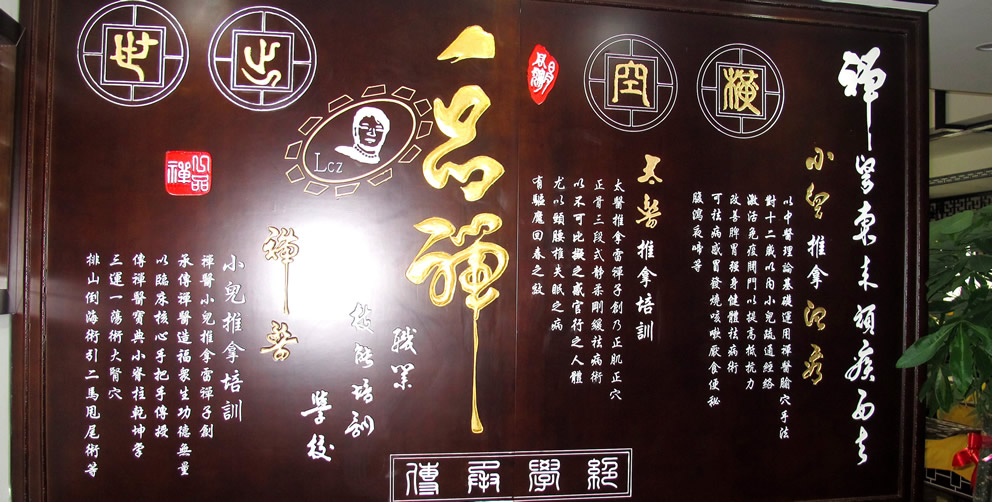 禪醫東來頑疾西去
橫空
出世
小兒推拿治療
以中醫理論基礎運用禪醫腧穴手法
對十二歲以內小兒疏通經絡
激活免疫閥門以提高抵抗力
改善脾胃强身健體祛病術
可祛病感冒發燒咳嗽厭食便秘
腹瀉夜啼等
太醫推拿培訓
太醫推拿雷禪子創乃正肌正穴
正骨三段式静柔剛緩祛病術
以不可比擬之威官行之人體
尤以頸腰椎失眠之病
有驅魔回春之效
一品禪
Lcz
職業
技能培訓
學校
禪醫
小兒推拿培訓
禪醫小兒推拿雷禪子創
承傳禪醫造福衆生功德無量
以臨床核心手把手傳授
傳禪醫寶典小脊柱乾坤学
三運一蕩術大腎穴
排山倒海術引二馬甩尾術等
一品禪
絕學承傳